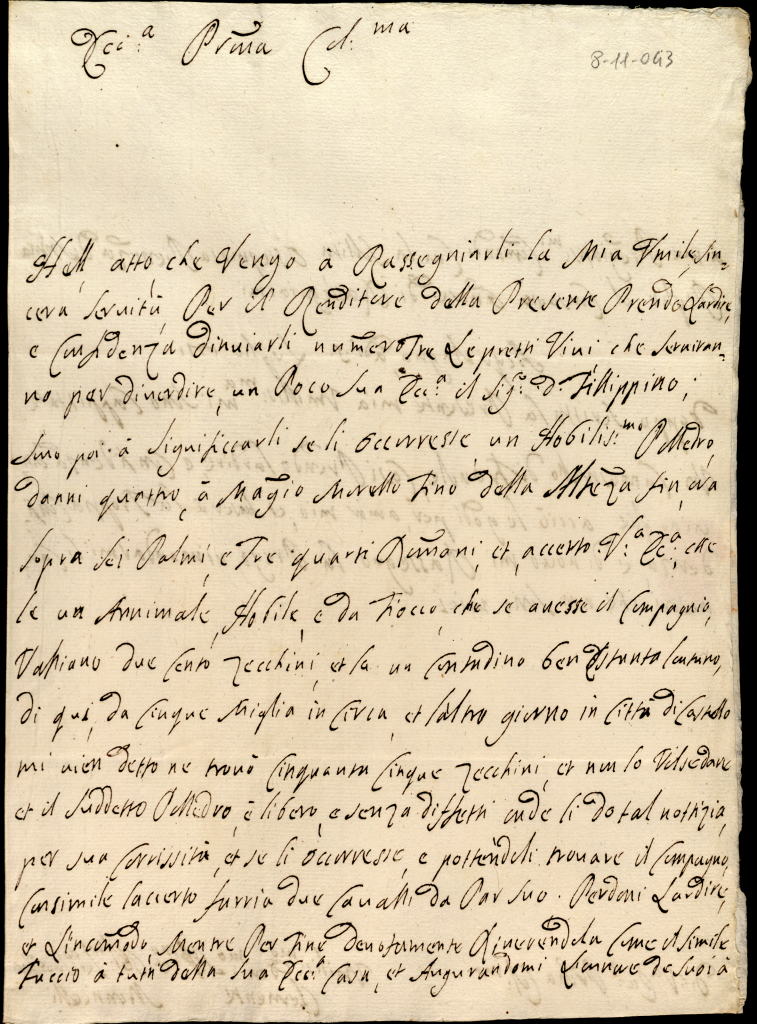 Ecc:a Prima Col:ma
8-11-043
Nell atto, che Vengo à Rassegniarli la Mia Vmile, sin=
cera seruitù, Per il Renditore della Presente Prendo Lardire,
e Confidenza dinuiarli numero Tre Lepretti Viui che seruiran=
no per diuerdire, un Poco Sua Ecc:a il Sig:r D: Fillippino;
Suo poi à significcarli se li occurresse, un Nobilis:mo Polledro,
danni quattro, à Magio Morello Fino della Altezza fin, ora
sopra sei Palmi, e Tre quarti Romani, et, accerto V:a Ecc:a, che
le un Annimale, Nobile, e da Fiocco, che se auesse il Compagnio,
Valliano due Cento Zecchini, et la un Contadino ben distante lontano,
di qui, da Cinque Miglia in Circa, et laltro giorno in Città di Castello
mi uien detto ne trouò Cinquanta Cinque Zecchini, et non lo Volse dare
et il Suddetto Polledro, è libero, e senza diffetti onde li do tal notizia,
per sua Corrissità, et se li occurresse, e pottendoli trouare il Compagno,
Consimile laccerto furria due Caualli da Par suo. Perdoni Lardire,
et Lincomodo, Mentre Per Fine deuotamente Riuerendola Come il Simile
Faccio à tutti della sua Ecc:a Casa, et Augurandomi Lonnore de suoi à